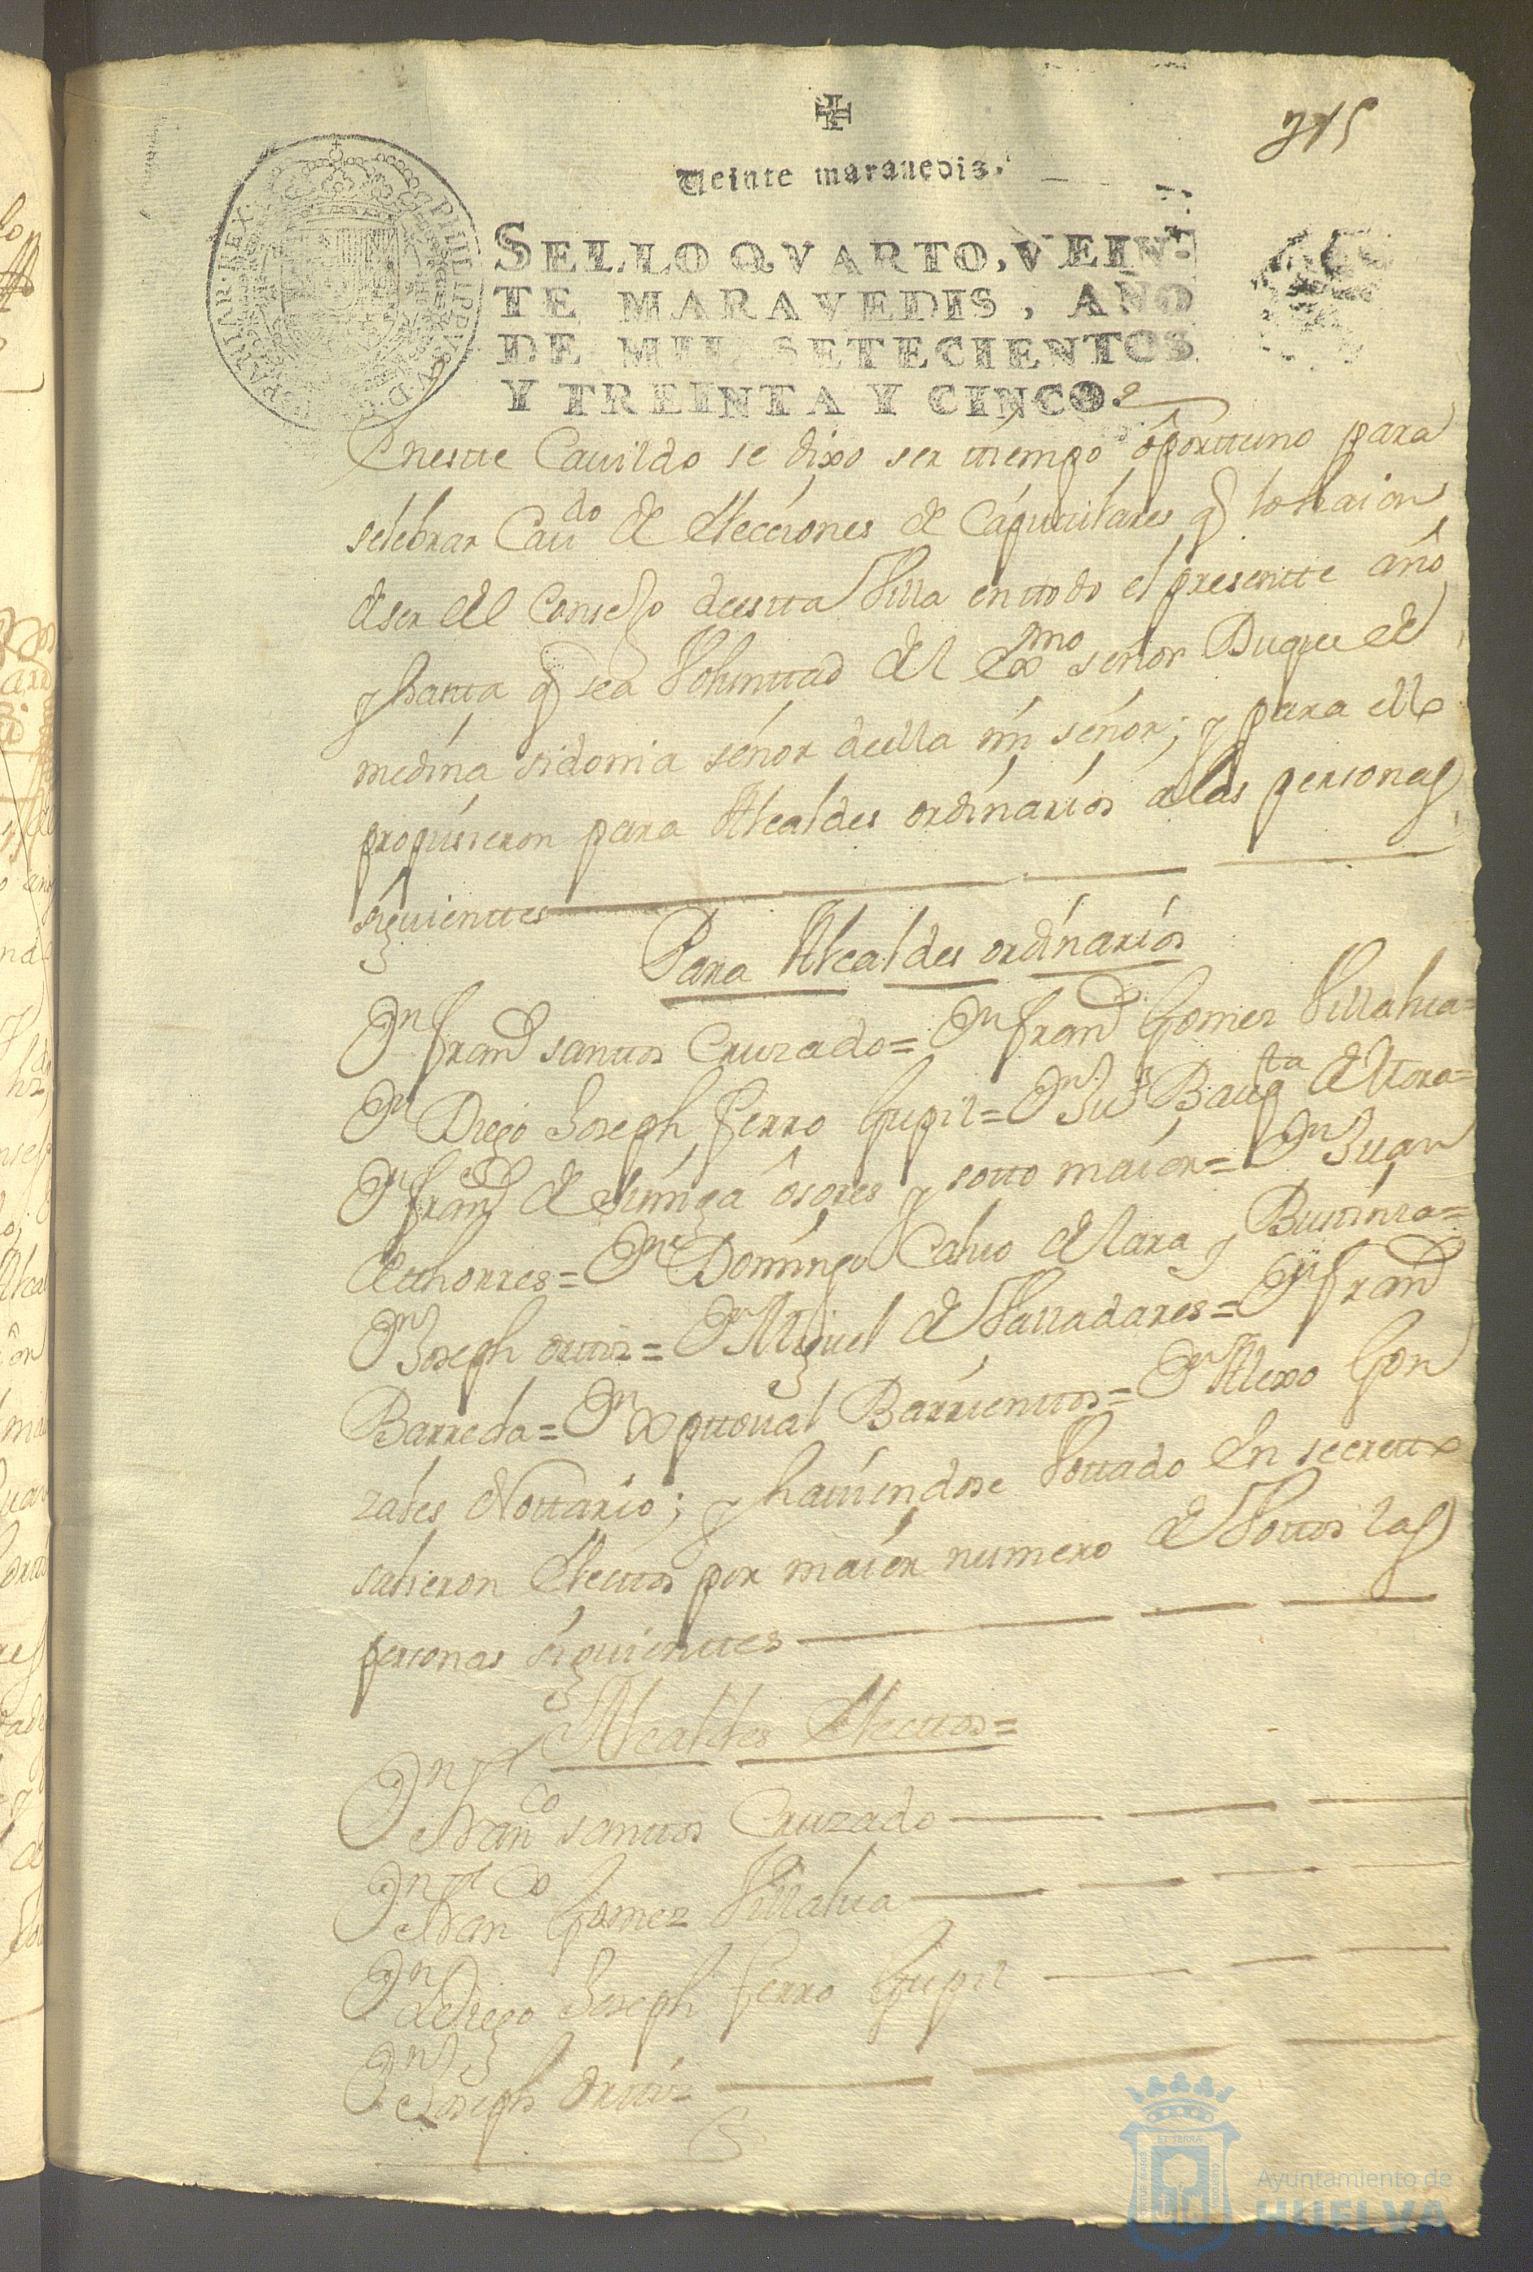 315
Veinte marauedis.
SELLO QVARTO, VEIN-
TE MARAVEDIS, AÑO
DE MIL SETECIENTOS
Y TREINTA Y CINCO.
PHILIPPVS V D G
HISPANIAR REX
Enestte Cauildo se dixo ser ttiempo oporttuno para
selebrar Caudo de elecciones de Capittulares q lo haian
deser del Consejo deestta Villa enttodo el presentte año
y hastta q sea Volunttad del exmo señor Duque de
medina sidonia señor deella mi señor; y para ello
propusieron para Alcaldes ordinarios alas personas
siguienttes
Para Alcaldes ordinarios
Dn franco santtos Cruzado= Dn franco Gomez Villalua=
Dn Diego Joseph fierro Gupil= Dn Ju Bauptta de Mora=
Dn franco de suniga osores y sotto maior= Dn Juan
de thorres= Dn Domingo Caluo de lara y
Dn Joseph orttiz= Dn Miguel de Valladares= Dn franco
Barreda= Dn Xpttoual Barrienttos= Dn Alexo Gon
zales Nottario; y hauiendose Vottado en secretto
salieron electtos por maior numero de Vottos las
personas siguienttes
Alcaldes electtos=
Dn franco santtos Cruzado
Dn franco Gomez Villalua
Dn Diego Joseph fierro Gupil
Dn Joseph orttiz
Ayuntamiento de
HUELVA